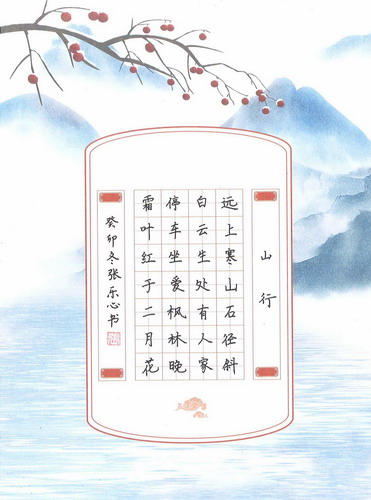 山行
远上寒山石径斜
白云生处有人家
停车坐爱枫林晚
霜叶红于二月花
癸卯冬张乐心书